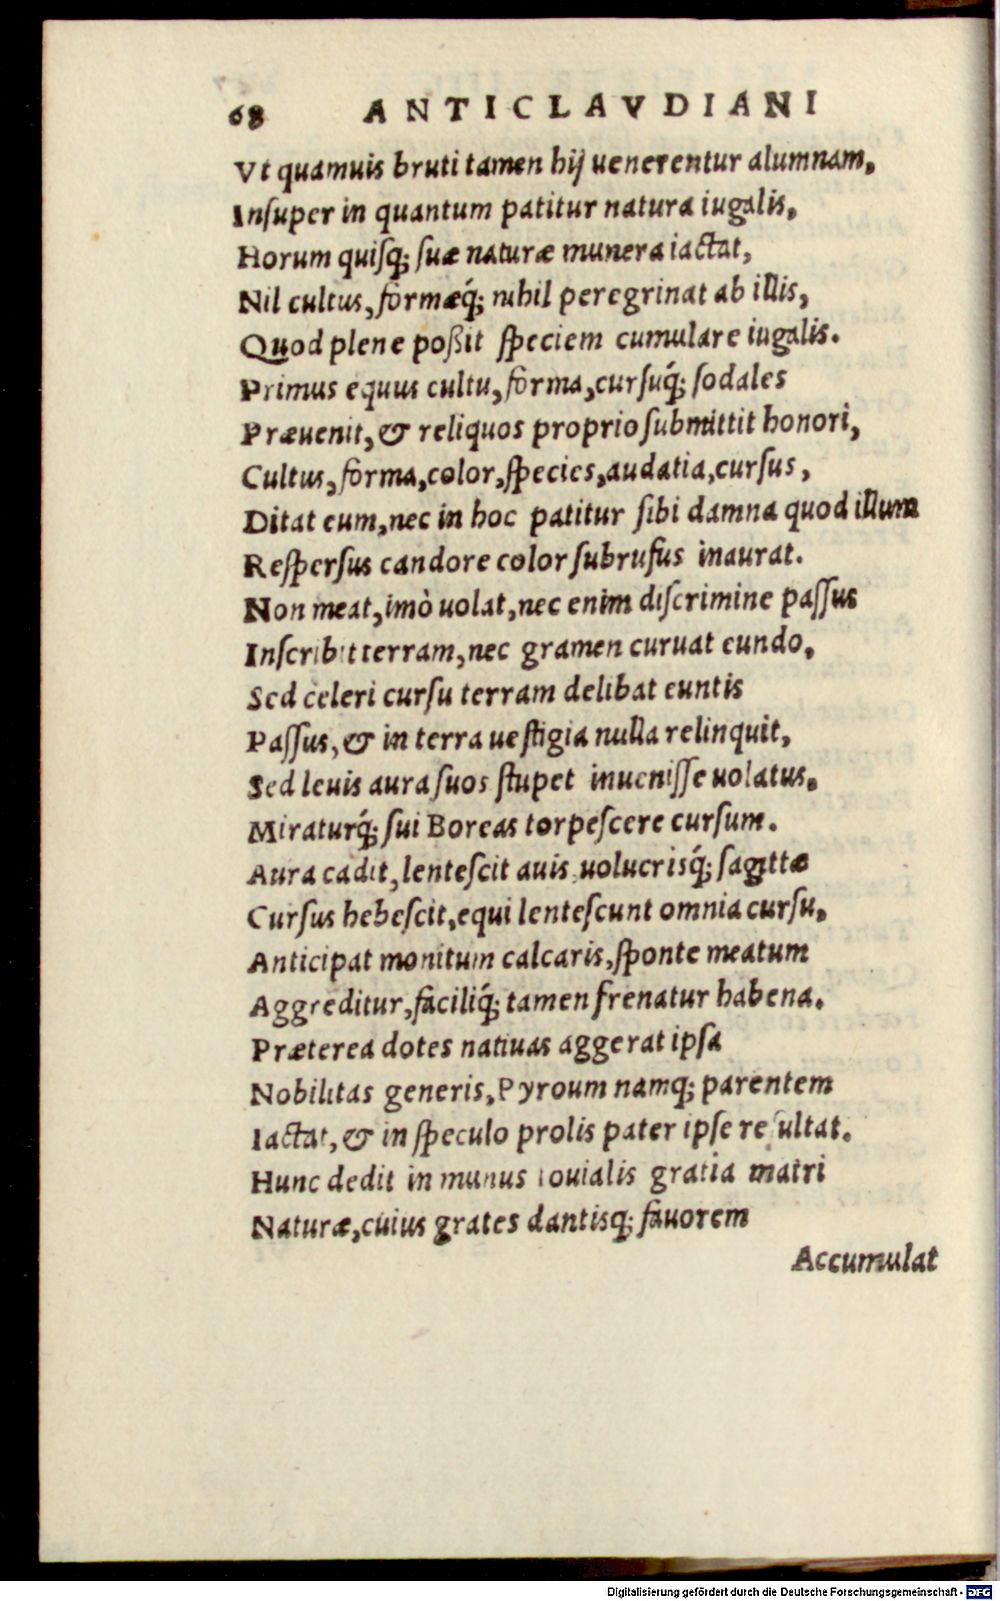 68 ANTICLAVDIANI
Vt quamuis bruti tamen hij uenerentur alumnam,
Inſuper in quantum patitur natura iugalis,
Horum quiſq; ſuæ naturæ munera iactat,
Nil cultus, formæq́; nihil peregrinat ab illis,
Quod plene poßit ſpeciem cumulare iugalis.
Primus equus cultu, forma, curſuq́; ſodales
Præuenit, & reliquos proprio ſubmittit honori,
Cultus, forma, color, ſpecies, audatia, curſus,
Ditat eum, nec in hoc patitur ſibi damna quod illum
Reſperſus candore color ſubrufus inaurat.
Non meat, imò uolat, nec enim diſcrimine paſſus
Inſcribit terram, nec gramen curuat eundo,
Sed celeri curſu terram delibat euntis
Paſſus, & in terra ueſtigia nulla relinquit,
Sed leuis aura ſuos ſtupet inueniſſe uolatus,
Miraturq́; ſui Boreas torpeſcere curſum.
Aura cadit, lenteſcit auis uolucrisq́; ſagittæ
Curſus hebeſcit, equi lenteſcunt omnia curſu,
Anticipat monitum calcaris, ſponte meatum
Aggreditur, faciliq́; tamen frenatur habena.
Præterea dotes natiuas aggerat ipſa
Nobilitas generis, Pyroum namq; parentem
Iactat, & in ſpeculo prolis pater ipſe reſultat.
Hunc dedit in munus Iouialis gratia matri
Naturæ, cuius grates dantisq; fauorem
Accumulat
Digitalisierung gefördert durch die Deutsche Forschungsgemeinschaft - DFG